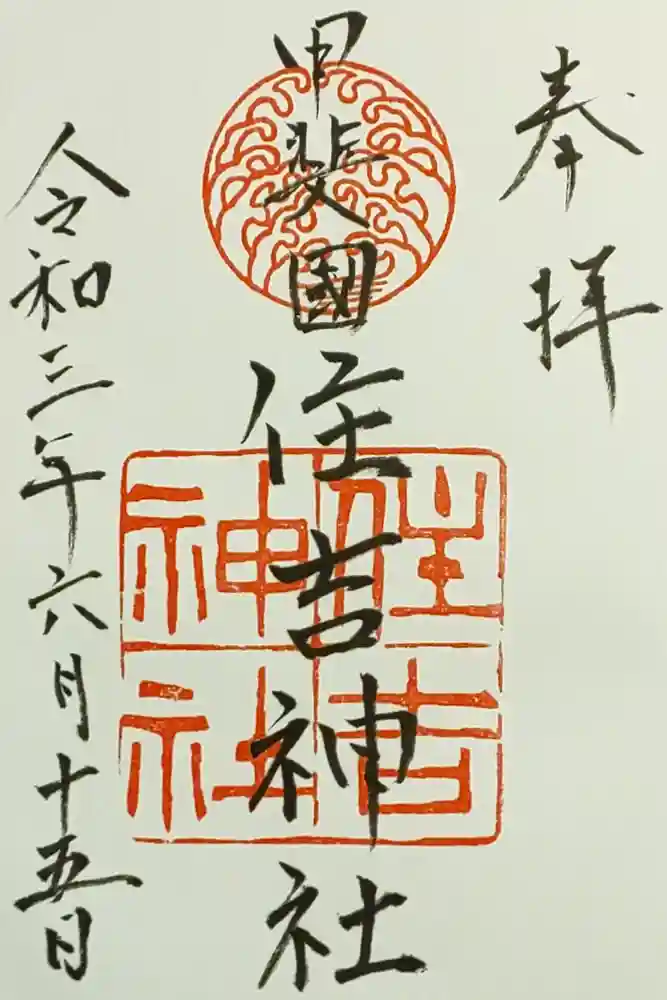 奉拝
甲斐國
住吉神社
住吉神社
令和三年六月十五日